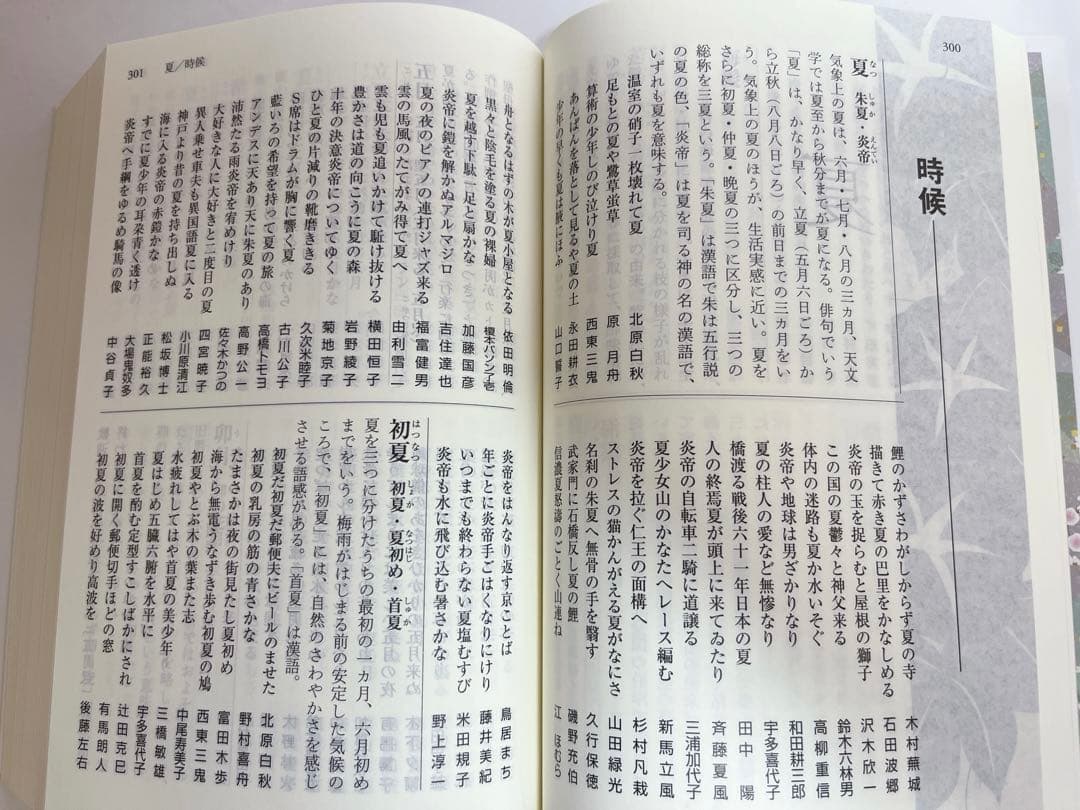 300
時候
夏 朱夏・炎帝
なつ しゅか えんてい
気象上の夏は、六月・七月・八月の三カ月、天文
学では夏至から秋分までが夏になる。俳句でいう
「夏」は、かなり早く、立夏(五月六日ごろ)か
ら立秋(八月八日ごろ)の前日までの三カ月をい
う。気象上の夏のほうが、生活実感に近い。夏を
さらに初夏・仲夏・晩夏の三つに区分し、三つの
総称を三夏という。「朱夏」は漢語で朱は五行説
の夏の色、「炎帝」は夏を司る神の名の漢語で、
いずれも夏を意味する。
温室の硝子一枚壊れて夏 北原白秋
足もとの夏や鷺草蛍草 原月舟
算術の少年しのび泣けり夏 西東三鬼
あんぱんを落として見るや夏の土 永田耕衣
少年の早くも夏は腋にほふ 山口誓子
鯉のかずさわがしからず夏の寺 木村蕪城
描きて赤き夏の巴里をかなしめる 石田波郷
炎帝の玉を捉らむと屋根の獅子 沢木欣一
この国の夏鬱々と神父来る 鈴木六林男
体内の迷路も夏か水いそぐ 高柳重信
炎帝や地球は男ざかりなり 和田耕三郎
夏の柱人の愛など無惨なり 宇多喜代子
橋渡る戦後六十一年日本の夏 田中陽
人の終焉夏が頭上に来てゐたり 斉藤夏風
炎帝の自転車二騎に道譲る 三浦加代子
夏少女山のかなたへレース編む 新馬立風
炎帝を拉ぐ仁王の面構へ 杉村凡栽
ストレスの猫かんがえる夏がなにさ 山田緑光
名刹の朱夏へ無骨の手を翳す 久行保徳
武家門に石橋反し夏の鯉 磯野充伯
信濃夏怒濤のごとく山連ね 江ほむら
301 夏/時候
舟となるはずの木が夏小屋となる 依田明倫
黒々と陰毛を塗る夏の裸婦 榎本バンプ了壱
夏を越す下駄一足と扇かな 加藤国彦
炎帝に鎧を解かぬアルマジロ 吉住達也
夏の夜のピアノの連打ジャズ来る 福富健男
雲の馬風のたてがみ得て夏へ 由利雪二
雲も児も夏追いかけて駈け抜ける 横田恒子
豊かさは道の向こうに夏の森 岩野綾子
十年の決意炎帝についてゆく 菊地京子
ひと夏の片減りの靴磨ききる 久次米睦子
S席はドラムが胸に響く夏 古川公子
藍いろの希望を持って夏の旅 高橋トモヨ
アンデスに天あり天に夏のあり 高野公一
沛然たる雨炎帝を宥めけり 佐々木かつの
大好きな人に大好きと二度目の夏 四宮暁子
異人乗せ車夫も異国語夏に入る 小川原清江
神戸より昔の夏を持ち出しぬ 松坂博士
海に入る炎帝の赤鎧かな 正能裕久
すでに夏少年の耳朶青く透け 大場鬼奴多
炎帝へ手綱をゆるめ騎馬の像 中谷貞子
炎帝をはんなり返す京ことば 鳥居まち
年ごとに炎帝手ごはくなりにけり 藤井美紀
いつまでも終わらない夏塩むすび 米田規子
炎帝も水に飛び込む暑さかな 野上淳一
はつなつ しょか なつはじめ しゅか
初夏 初夏・夏初め・首夏
夏を三つに分けたうちの最初の一カ月、六月初め
までをいう。梅雨がはじまる前の安定した気候の
ころで、「初夏」には、自然のさわやかさを感じ
させる語感がある。「首夏」は漢語。
初夏だ初夏だ郵便夫にビールのませた 北原白秋
初夏の乳房の筋の青さかな 野村喜舟
たまさかは夜の街見たし夏初め 富田木歩
海から無電うなずき歩む初夏の鳩 西東三鬼
初夏やとぶ木の葉また志 中尾寿美子
水疲れしてはや首夏の美少年 三橋敏雄
夏はじめ五臓六腑を水平に 宇多喜代子
首夏を酌む定型すこしばかにされ 辻田克巳
初夏に開く郵便切手ほどの窓 有馬朗人
初夏の波を好めり高波を 後藤左右